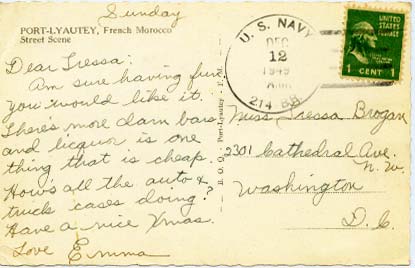 Sunday
PORT-LYAUTEY, French Morocco
Street Scene
Dear Tressa:
Am sure having fun
you would like it.
There's more darn bars
and licquor is one
thing that is cheap.
How's all the auto &
truck cases doing?
Have a nice Xmas.
Love Emma
U. S. NAVY
DEC
12
1949
A.M.
214 BR
UNITED
STATES
POSTAGE
1 CENT 1
Miss Tressa Brogan
2301 Cathedral Ave.
N. W.
Washington
D. C.